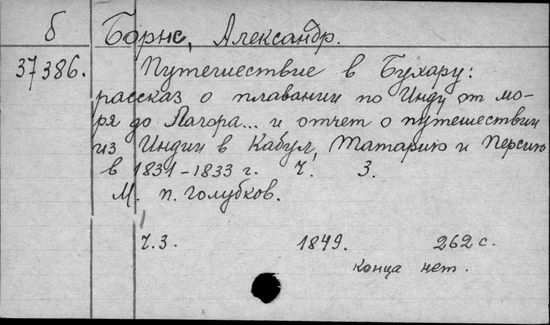 б Борнс, Александр.
37386. Путешествие в Бухару:
рассказ о плавании по Инду от мо-
ря до Лагора... и отчет о путешествии
из Индии в Кабул, Татарию и Персию
в 1831-1833 г. Ч. 3.
М. П. Голубков.
Ч.3. 1849. 262 с.
конца нет.